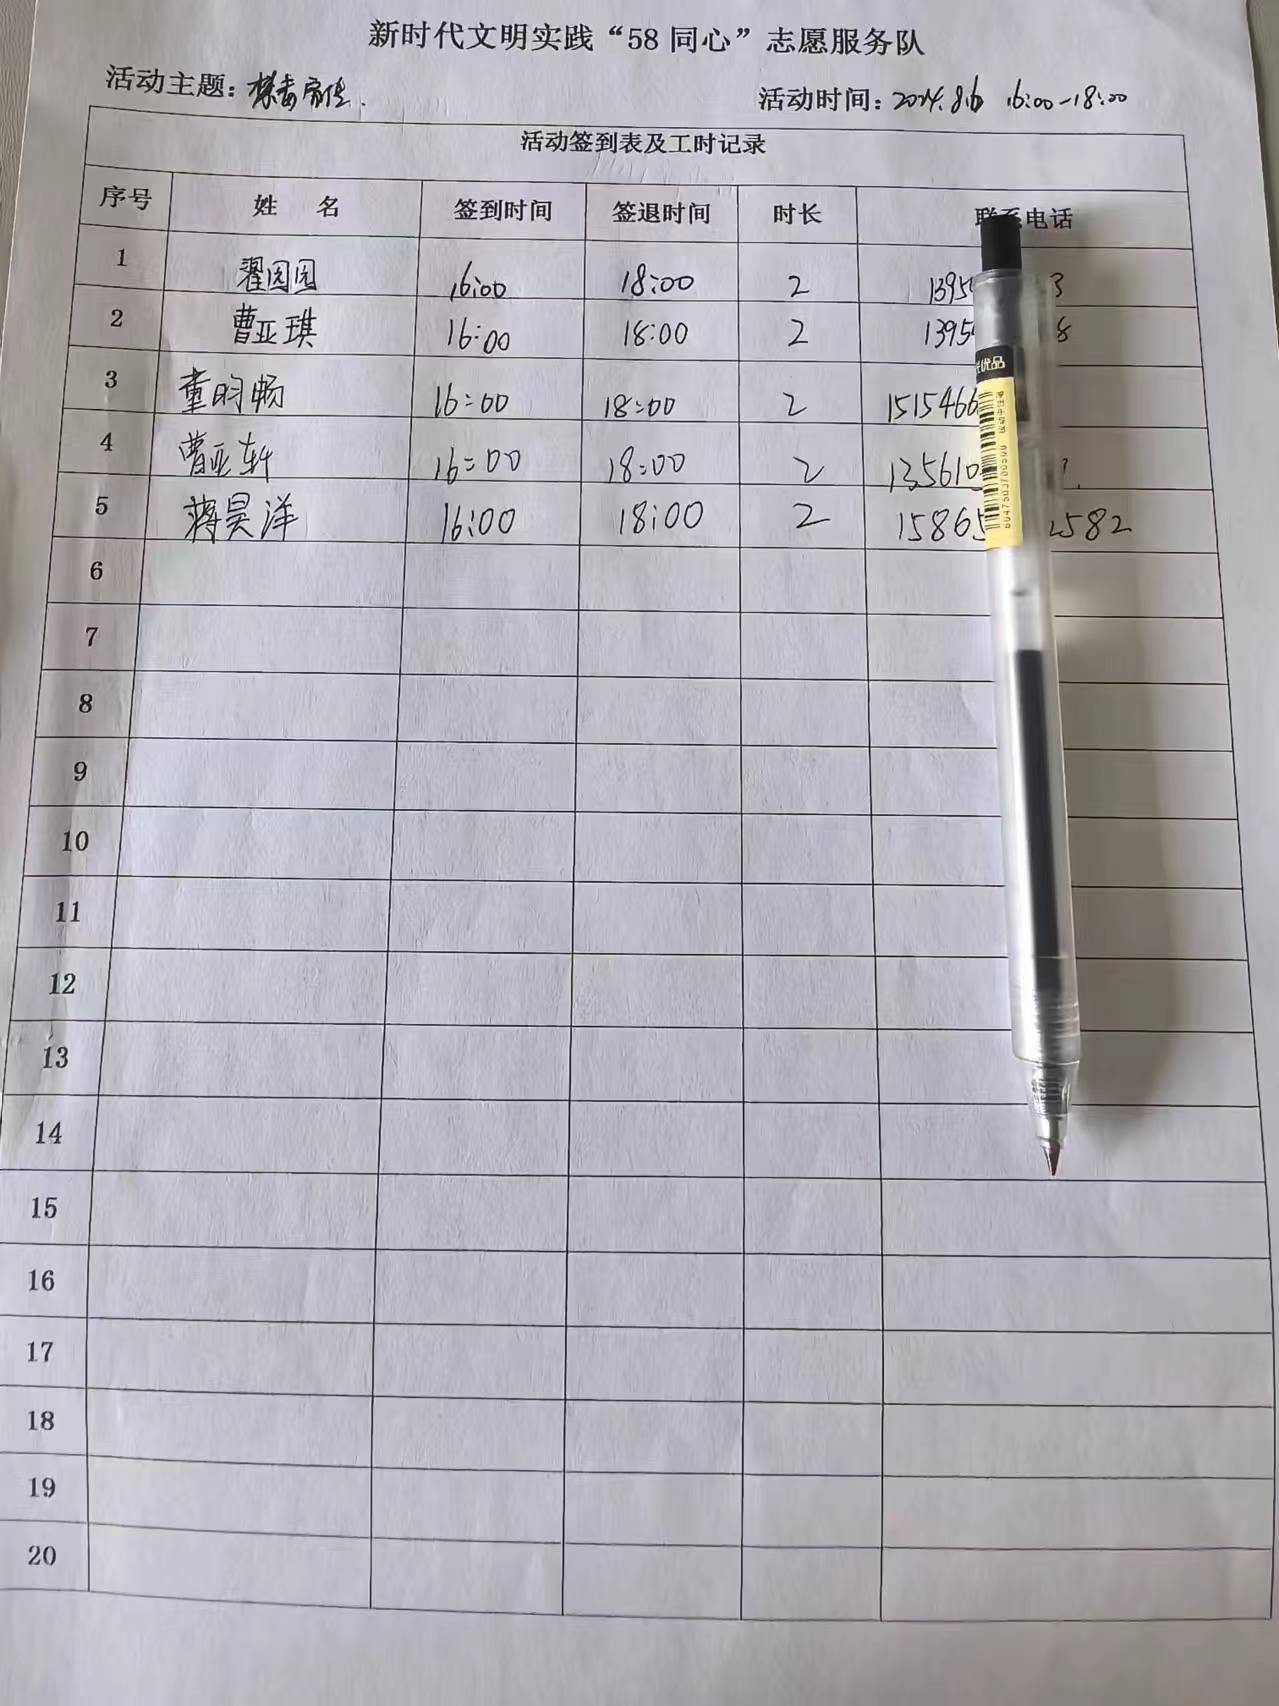 新时代文明实践“58同心”志愿服务队
活动主题：禁毒宣传.
活动时间：2024.8.16 16:00-18:00
活动签到表及工时记录
序号 姓 名 签到时间 签退时间 时长 联系电话
1 翟园园 16:00 18:00 2 1395 3
2 曹亚琪 16:00 18:00 2 1395 8
3 董昀畅 16:00 18:00 2 1515466
4 曹亚轩 16:00 18:00 2 13561
5 蒋昊洋 16:00 18:00 2 15865 2582
6
7
8
9
10
11
12
13
14
15
16
17
18
19
20
优品